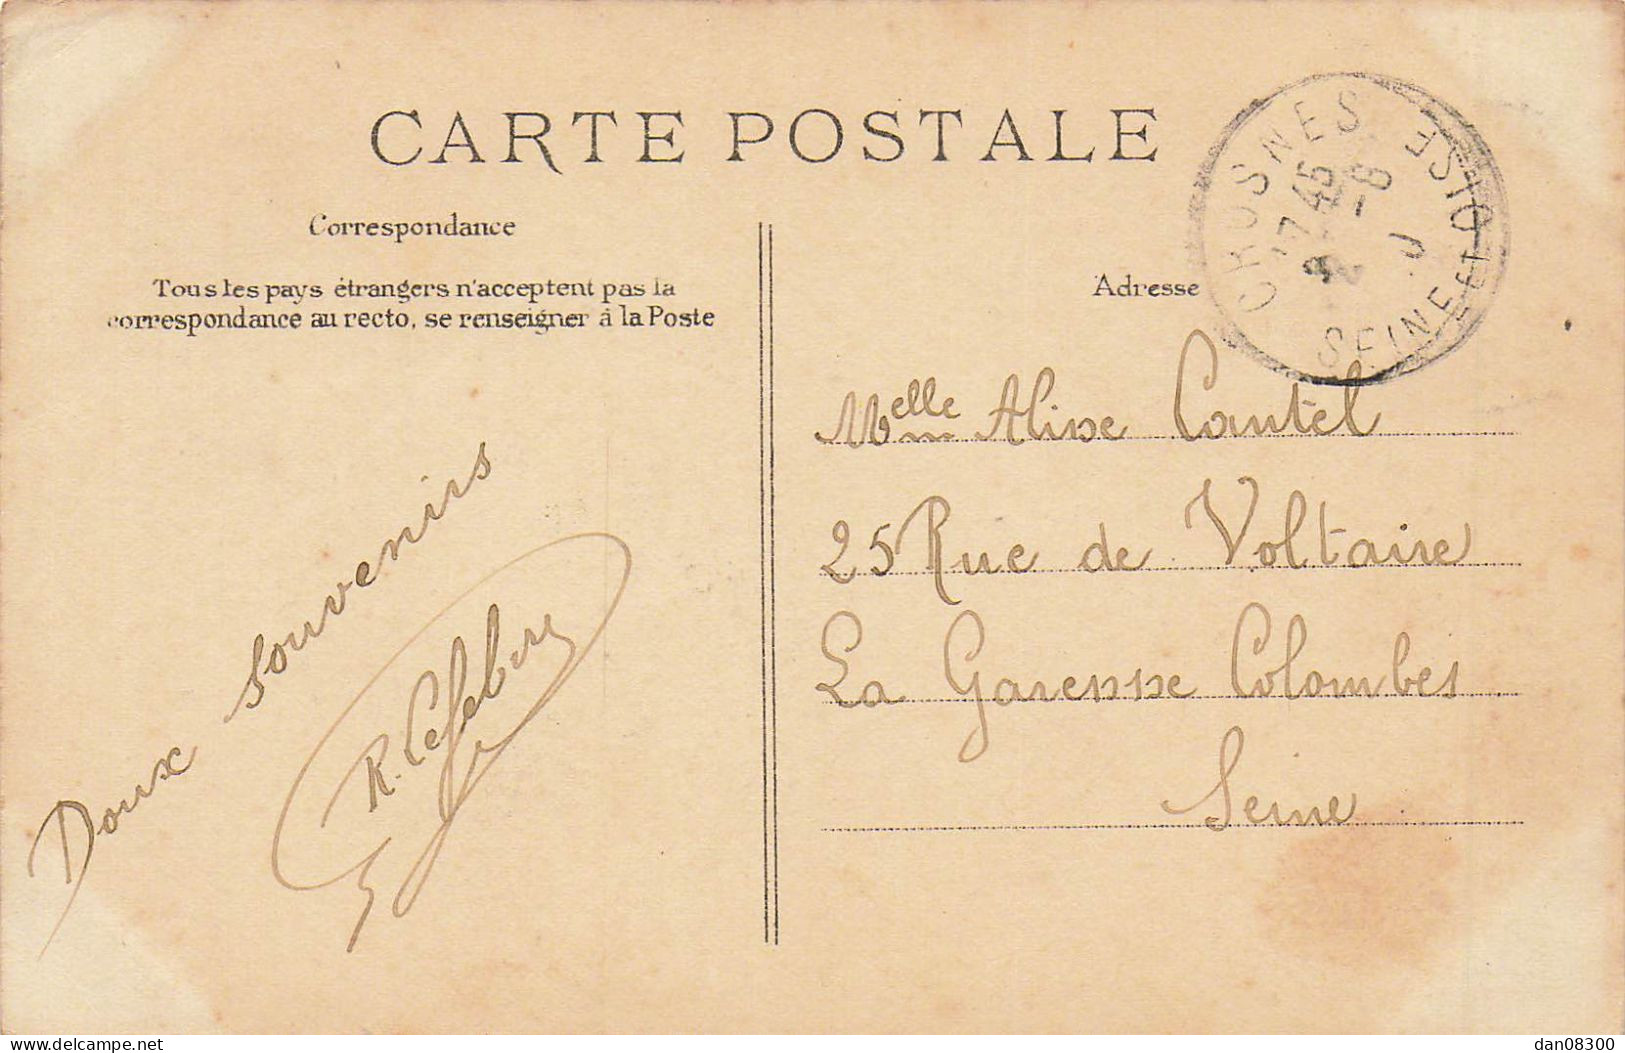 CARTE POSTALE
Correspondance
Tous les pays étrangers n'acceptent pas la
correspondance au recto, se renseigner à la Poste
Adresse
CROSNES
17 45
SEINE ET OISE
Melle Alise Cantel
25 Rue de Voltaire
La Garenne Colombes
Seine
Doux souvenirs
R. Lefebvre
www.delcampe.net
dan08300